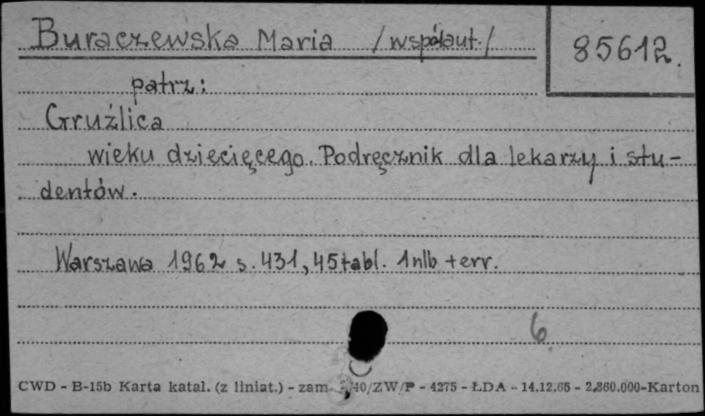 Buraczewska Maria /współaut./
85612.
patrz:
Gruźlica
wieku dziecięcego. Podręcznik dla lekarzy i stu-
dentów.
Warszawa 1962 s. 431, 45 tabl. 1 nlb + err.
6
CWD - B-15b Karta katal. (z liniat.) - zam. 40/ZW/P - 4275 - ŁDA - 14.12.65 - 2,860.000-Karton